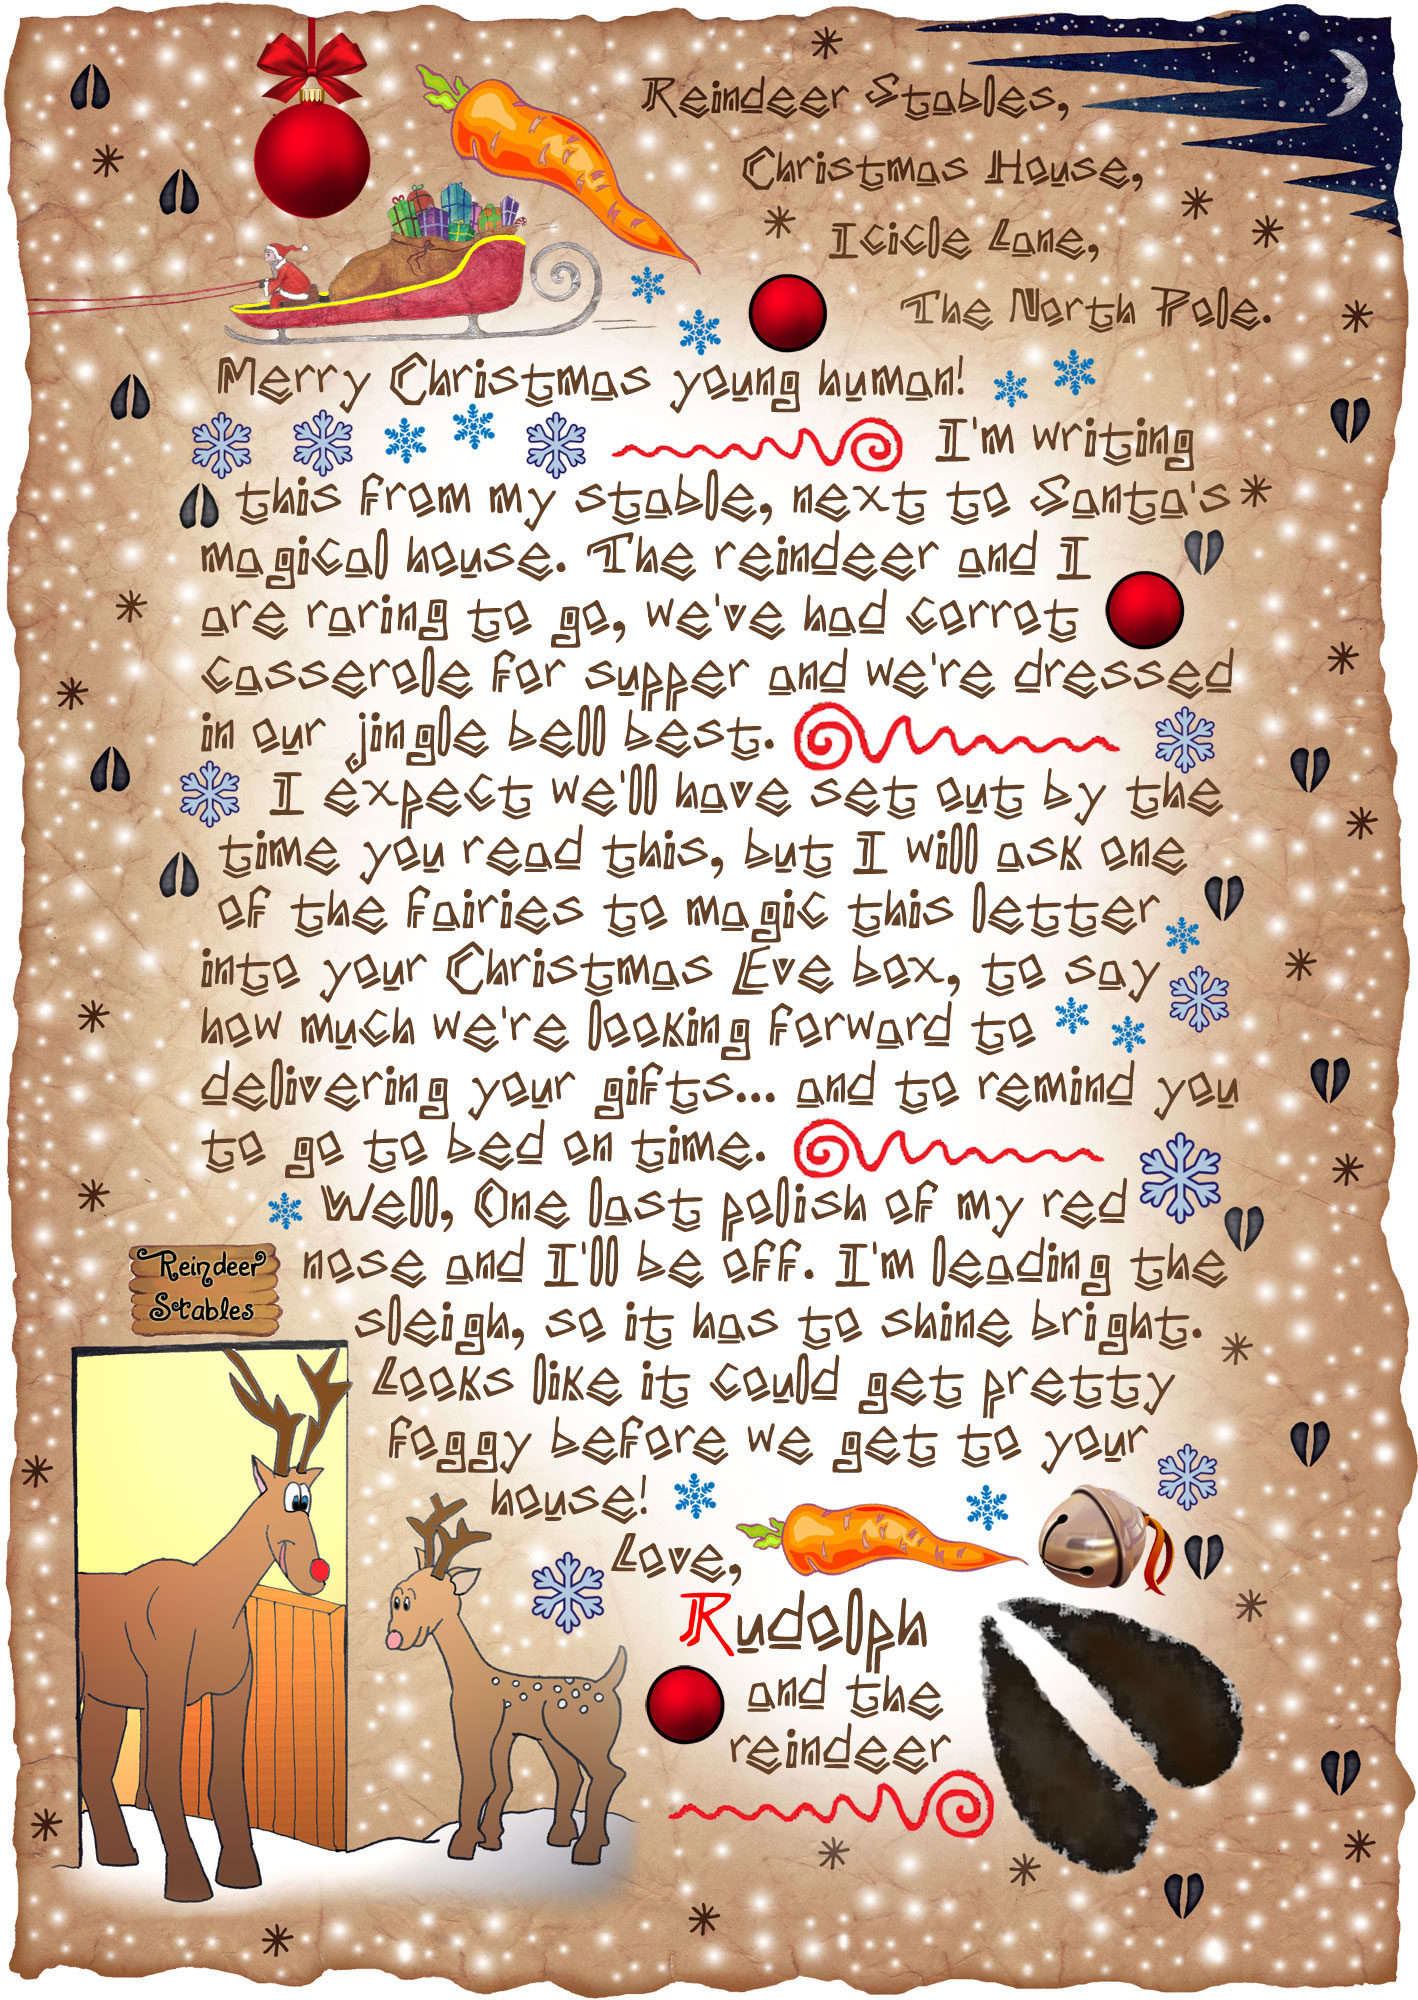 Reindeer Stables,
Christmas House,
Icicle Lane,
The North Pole.
Merry Christmas young human!
I'm writing
this from my stable, next to Santa's
magical house. The reindeer and I
are raring to go, we've had carrot
casserole for supper and we're dressed
in our jingle bell best.
I expect we'll have set out by the
time you read this, but I will ask one
of the fairies to magic this letter
into your Christmas Eve box, to say
how much we're looking forward to
delivering your gifts... and to remind you
to go to bed on time.
Well, One last polish of my red
nose and I'll be off. I'm leading the
sleigh, so it has to shine bright.
Looks like it could get pretty
foggy before we get to your
house!
Love,
Rudolph
and the
reindeer
Reindeer
Stables